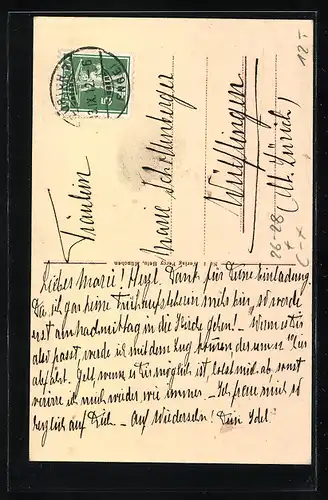 12.-
Fräulein
Marie Schellenberger
Wülflingen
(Kt. Zürich)
26-28
5
Verlag Percy Hein, München
Liebes Marei! Herzl. Dank für Deine Einladung.
Da ich gar keine Frühaufsteherin mich bin, so werde
erst am Nachmittag in die Stunde gehen! - Wenn es Dir
also passt, werde ich mit dem Zug kommen, der um 10 Uhr
abfährt. Gelt, wenn es Dir möglich ist, holst mich ab, sonst
verirre ich mich wieder wie immer. - Ich freue mich so
herzlich auf Dich - Auf Wiedersehn! Dein Idel.